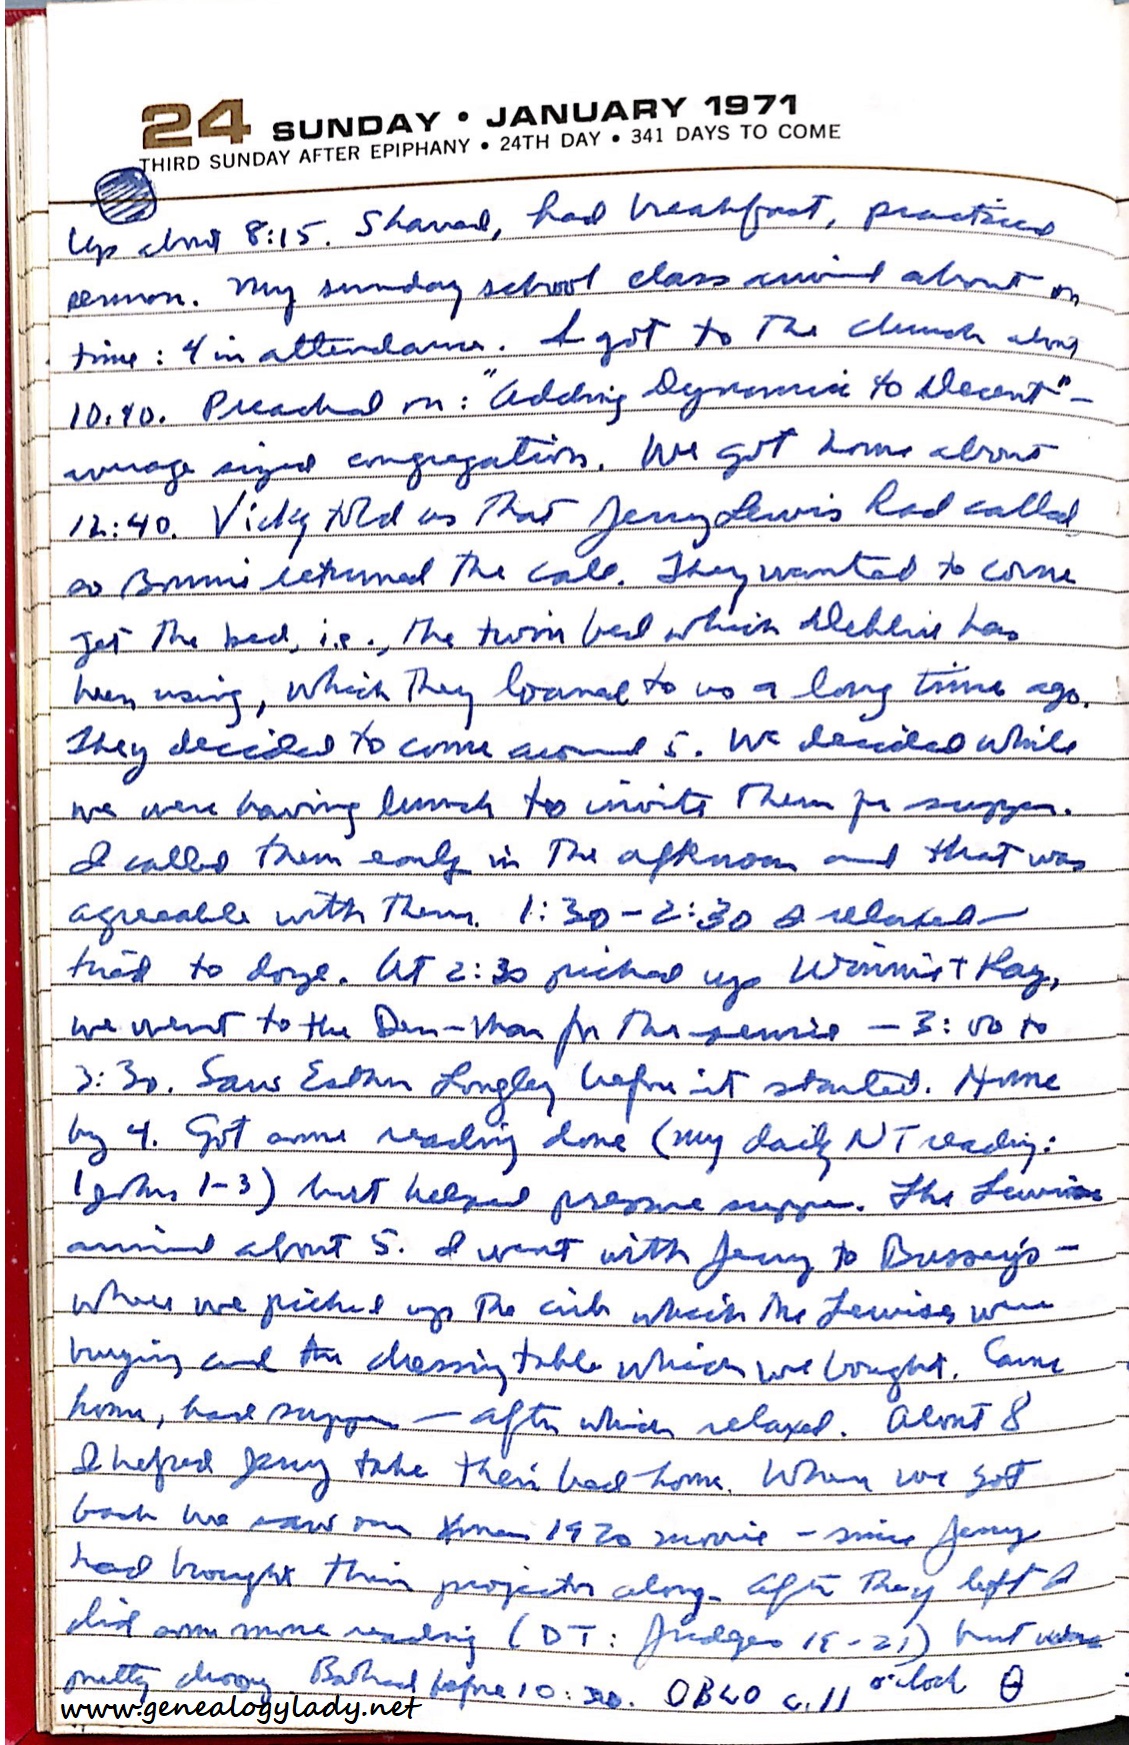 24 SUNDAY • JANUARY 1971
THIRD SUNDAY AFTER EPIPHANY • 24TH DAY • 341 DAYS TO COME
Up about 8:15. Shaved, had breakfast, practiced
sermon. My sunday school class arrived about on
time: 4 in attendance. I got to the church along
10:40. Preached on: "Adding Dynamic to Decent" –
average sized congregation. We got home about
12:40. Vicky told us that Jerry Lewis had called
so Bonnie returned the call. They wanted to come
get the bed, i.e., the twin bed which Debbie has
been using, which they loaned to us a long time ago.
They decided to come around 5. We decided while
we were having lunch to invite them for supper.
I called them early in the afternoon and that was
agreeable with them. 1:30–2:30 I relaxed –
tried to doze. At 2:30 picked up Winnie + Kay,
we went to the Den-Mar for the service – 3:00 to
3:30. Saw Esther Longley before it started. Home
by 4. Got some reading done (my daily NT reading:
1 John 1–3) but helped prepare supper. The Lewises
arrived about 5. I went with Jerry to Bussey's –
where we picked up the crib which the Lewises were
buying and the dressing table which we bought. Came
home, had supper – after which relaxed. About 8
I helped Jerry take their bed home. When we got
back we saw our Xmas 1970 movie – since Jerry
had brought their projector along. After they left I
did some more reading (OT: Judges 19–21) but was
pretty drowsy. Bathed before 10:30. OBLO c. 11 o'clock
www.genealogylady.net